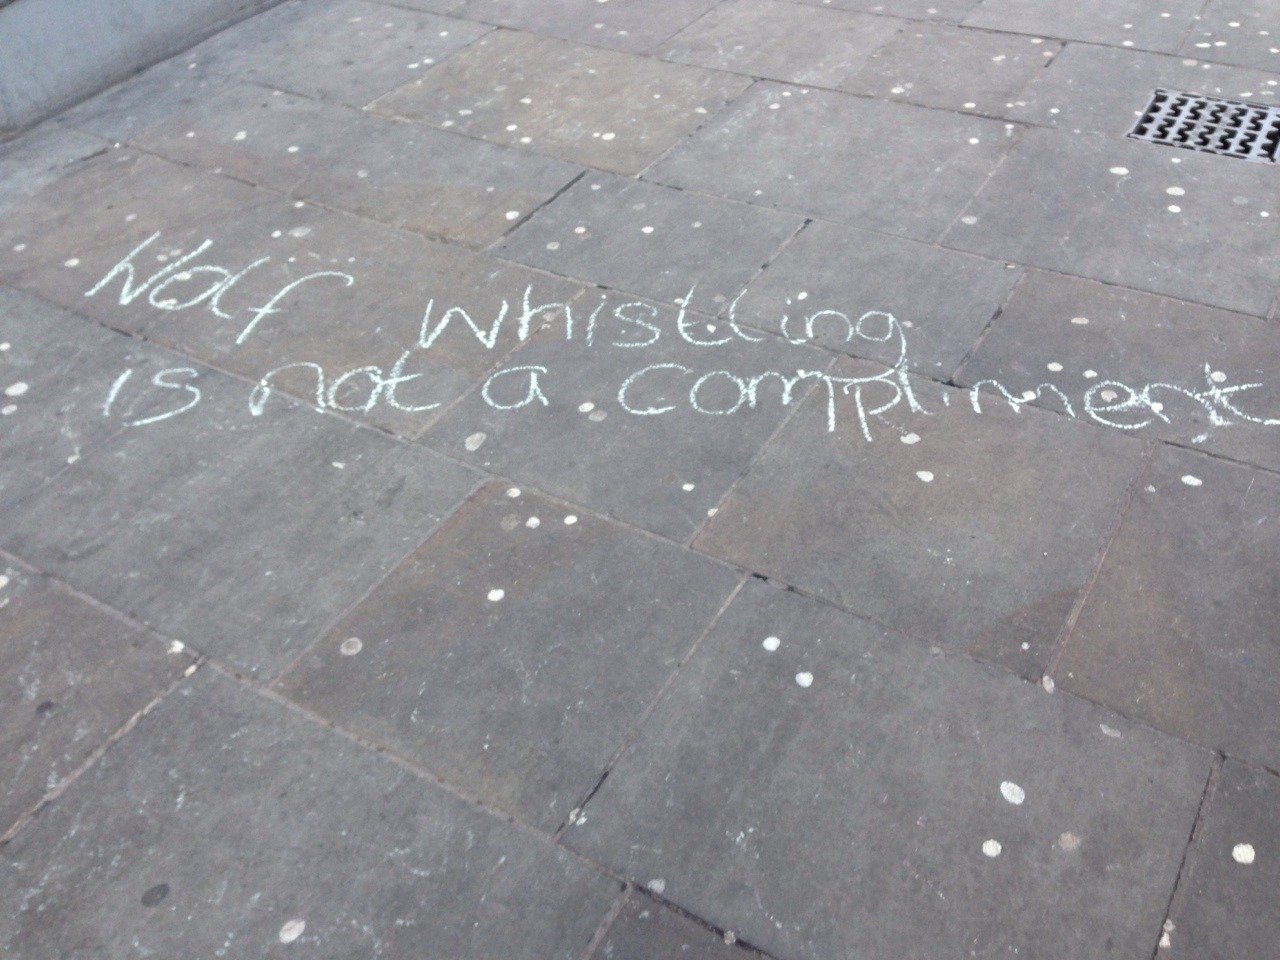 Wolf whistling
is not a compliment